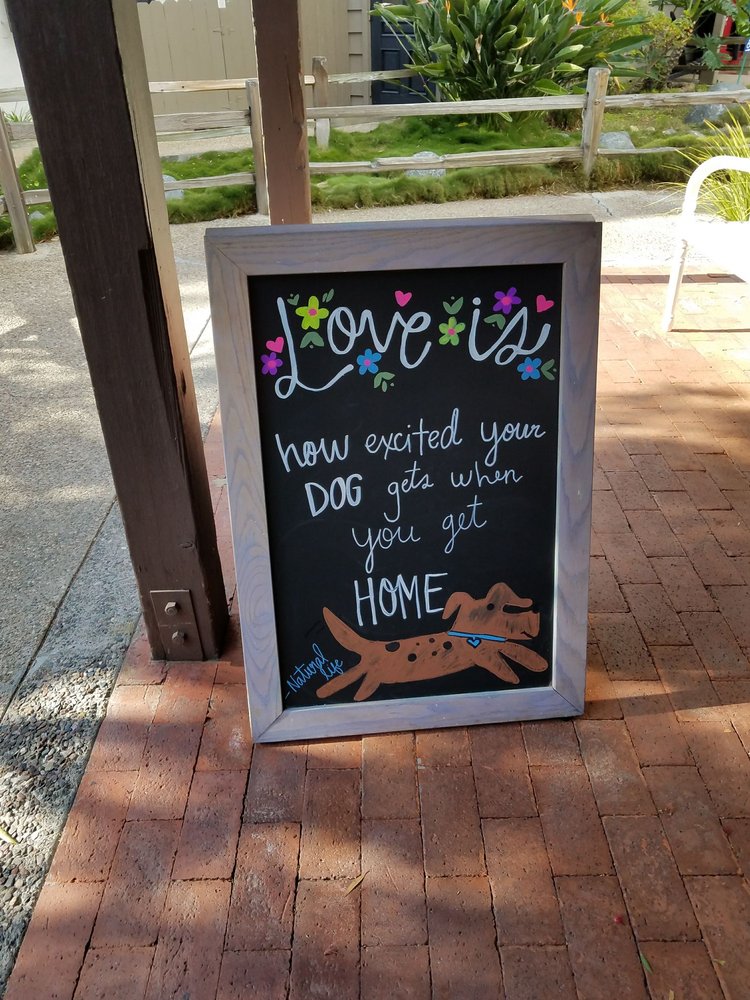 Love is
how excited your
DOG gets when
you get
HOME
-Natural
life